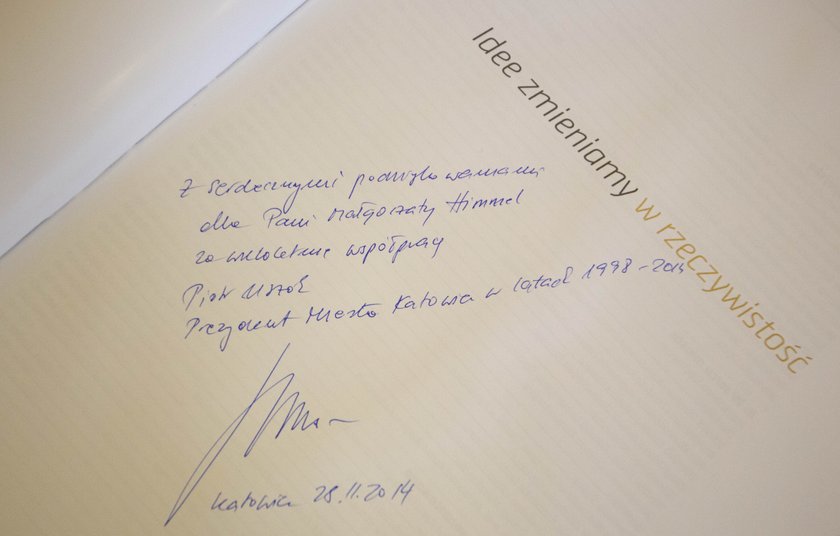 Idee zmieniamy w rzeczywistość
Z serdecznymi podziękowaniami
dla Pani Małgorzaty Himmel
za wieloletnią współpracę
Piotr Uszok
Prezydent Miasta Katowice w latach 1998-2014
Katowice 28.11.2014